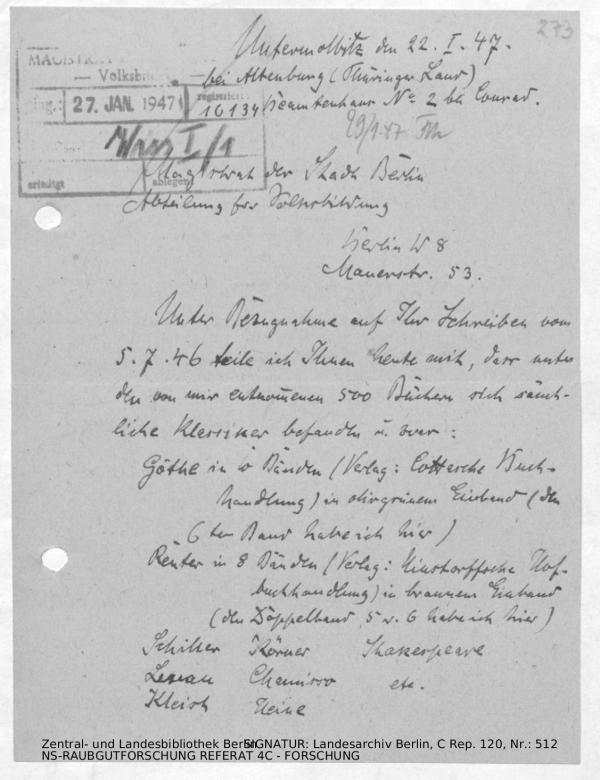 273
Untermolbitz den 22. I. 47.
bei Altenburg (Thüringer Land)
Beamtenhaus No 2 bei Conrad.
MAGISTRAT
— Volksbi
Eing.: 27. JAN. 1947 registriert:
16134
I/1
erledigt ablegen
29/1.47
Magistrat der Stadt Berlin
Abteilung für Volksbildung
Berlin W 8
Mauerstr. 53.
Unter Bezugnahme auf Ihr Schreiben vom
5. 7. 46 teile ich Ihnen heute mit, dass unter
den von mir entnommenen 500 Büchern sich sämt-
liche Klassiker befanden u. zwar:
Göthe in 10 Bänden (Verlag: Cottasche Buch-
handlung) in olivgrünem Einband (den
6ten Band habe ich hier)
Reuter in 8 Bänden (Verlag: Hinstorffsche Hof-
buchhandlung) in braunem Einband
(den Doppelband 5 u. 6 habe ich hier)
Schiller Körner Shakespeare
Lenau Chamisso etc.
Kleist Heine
Zentral- und Landesbibliothek Berlin SIGNATUR: Landesarchiv Berlin, C Rep. 120, Nr.: 512
NS-RAUBGUTFORSCHUNG REFERAT 4C - FORSCHUNG